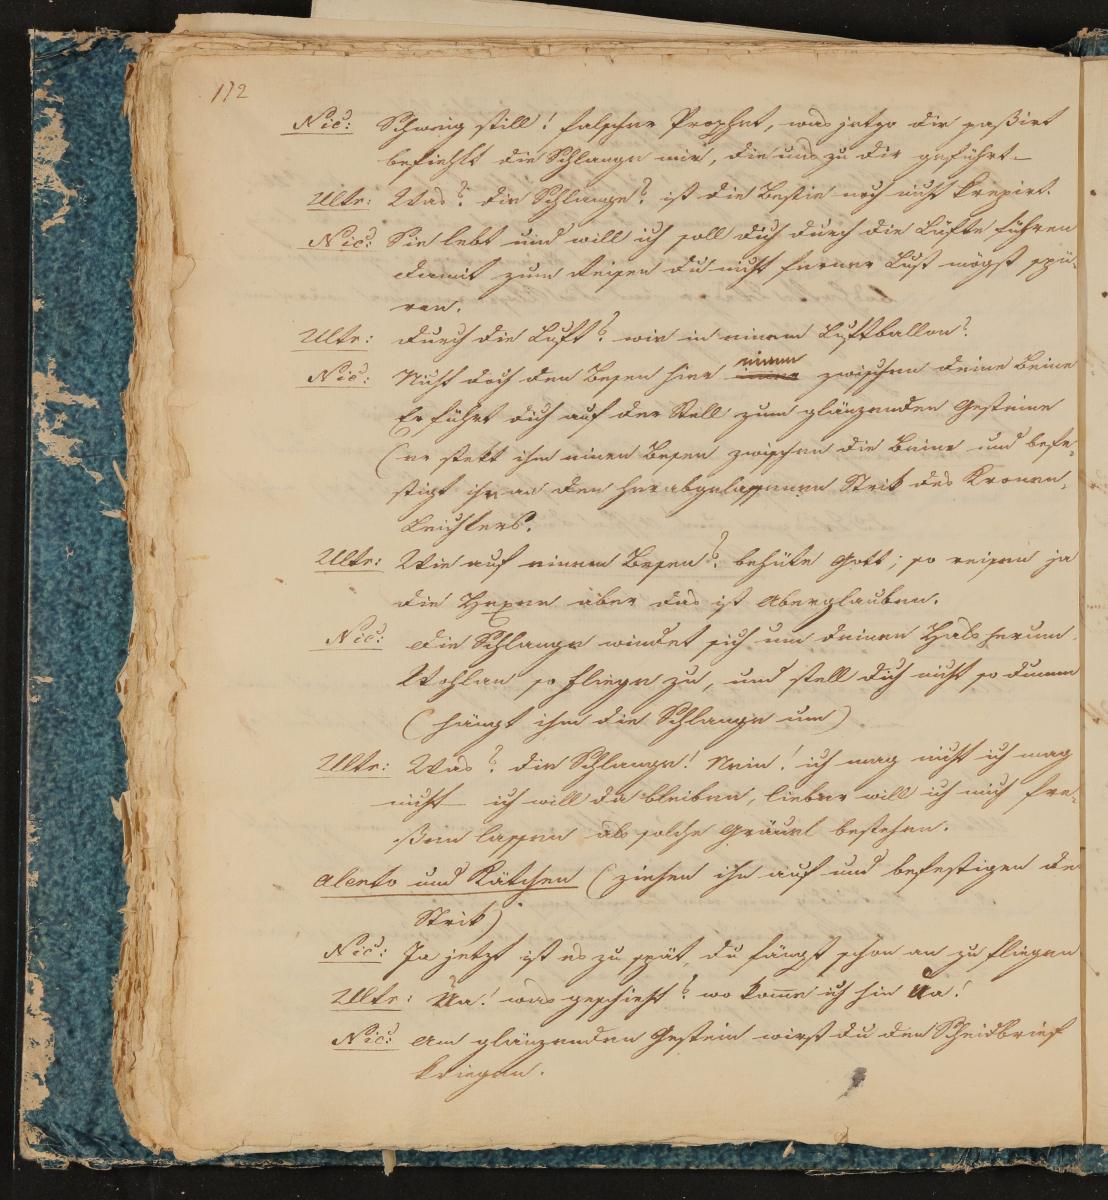 172
Nic: Schweig still! falscher Prophet, was jetzo dir paßirt
befiehlt die Schlange mir, die uns zu dir geführt –
Ulte: Was? die Schlange? ist die Bestie noch nicht krepirt.
Nic: Sie lebt und will ich soll dich durch die Lüfte führen
damit zum Reisen du nicht ferner Lust mögst spü-
ren.
Ulte: durch die Luft? wie in einem Luftballon?
Nic: Nicht doch den Besen hier nimm zwischen deine Beine
Er führt dich auf der Stell zum glänzenden Gesteine
(er stekt ihm einen Besen zwischen die Beine und befe-
stigt ihn an den herabgelassenen Strik des Kronen-
Leuchters.
Ulte: Wie auf einem Besen? behüte Gott; so reisen ja
die Hexen aber das ist Aberglauben.
Nic: die Schlange windet sich um deinen Hals herum
Wohlan so fliege zu, und stell dich nicht so dumm
(hängt ihm die Schlange um)
Ulte: Was? die Schlange! Nein! ich mag nicht ich mag
nicht – ich will da bleiben, lieber will ich mich fre-
ßen lassen als solche Gräuel bestehen.
Alento und Kätchen (ziehen ihn auf und befestigen de
Strik)
Nic: Ja jetzt ist es zu spät, du fängst schon an zu fliegen
Ulte: Ua! was geschieht? wo kome ich hin Ua!
Nic: Am glänzenden Gestein wirst du den Scheidbrief
kriegen.